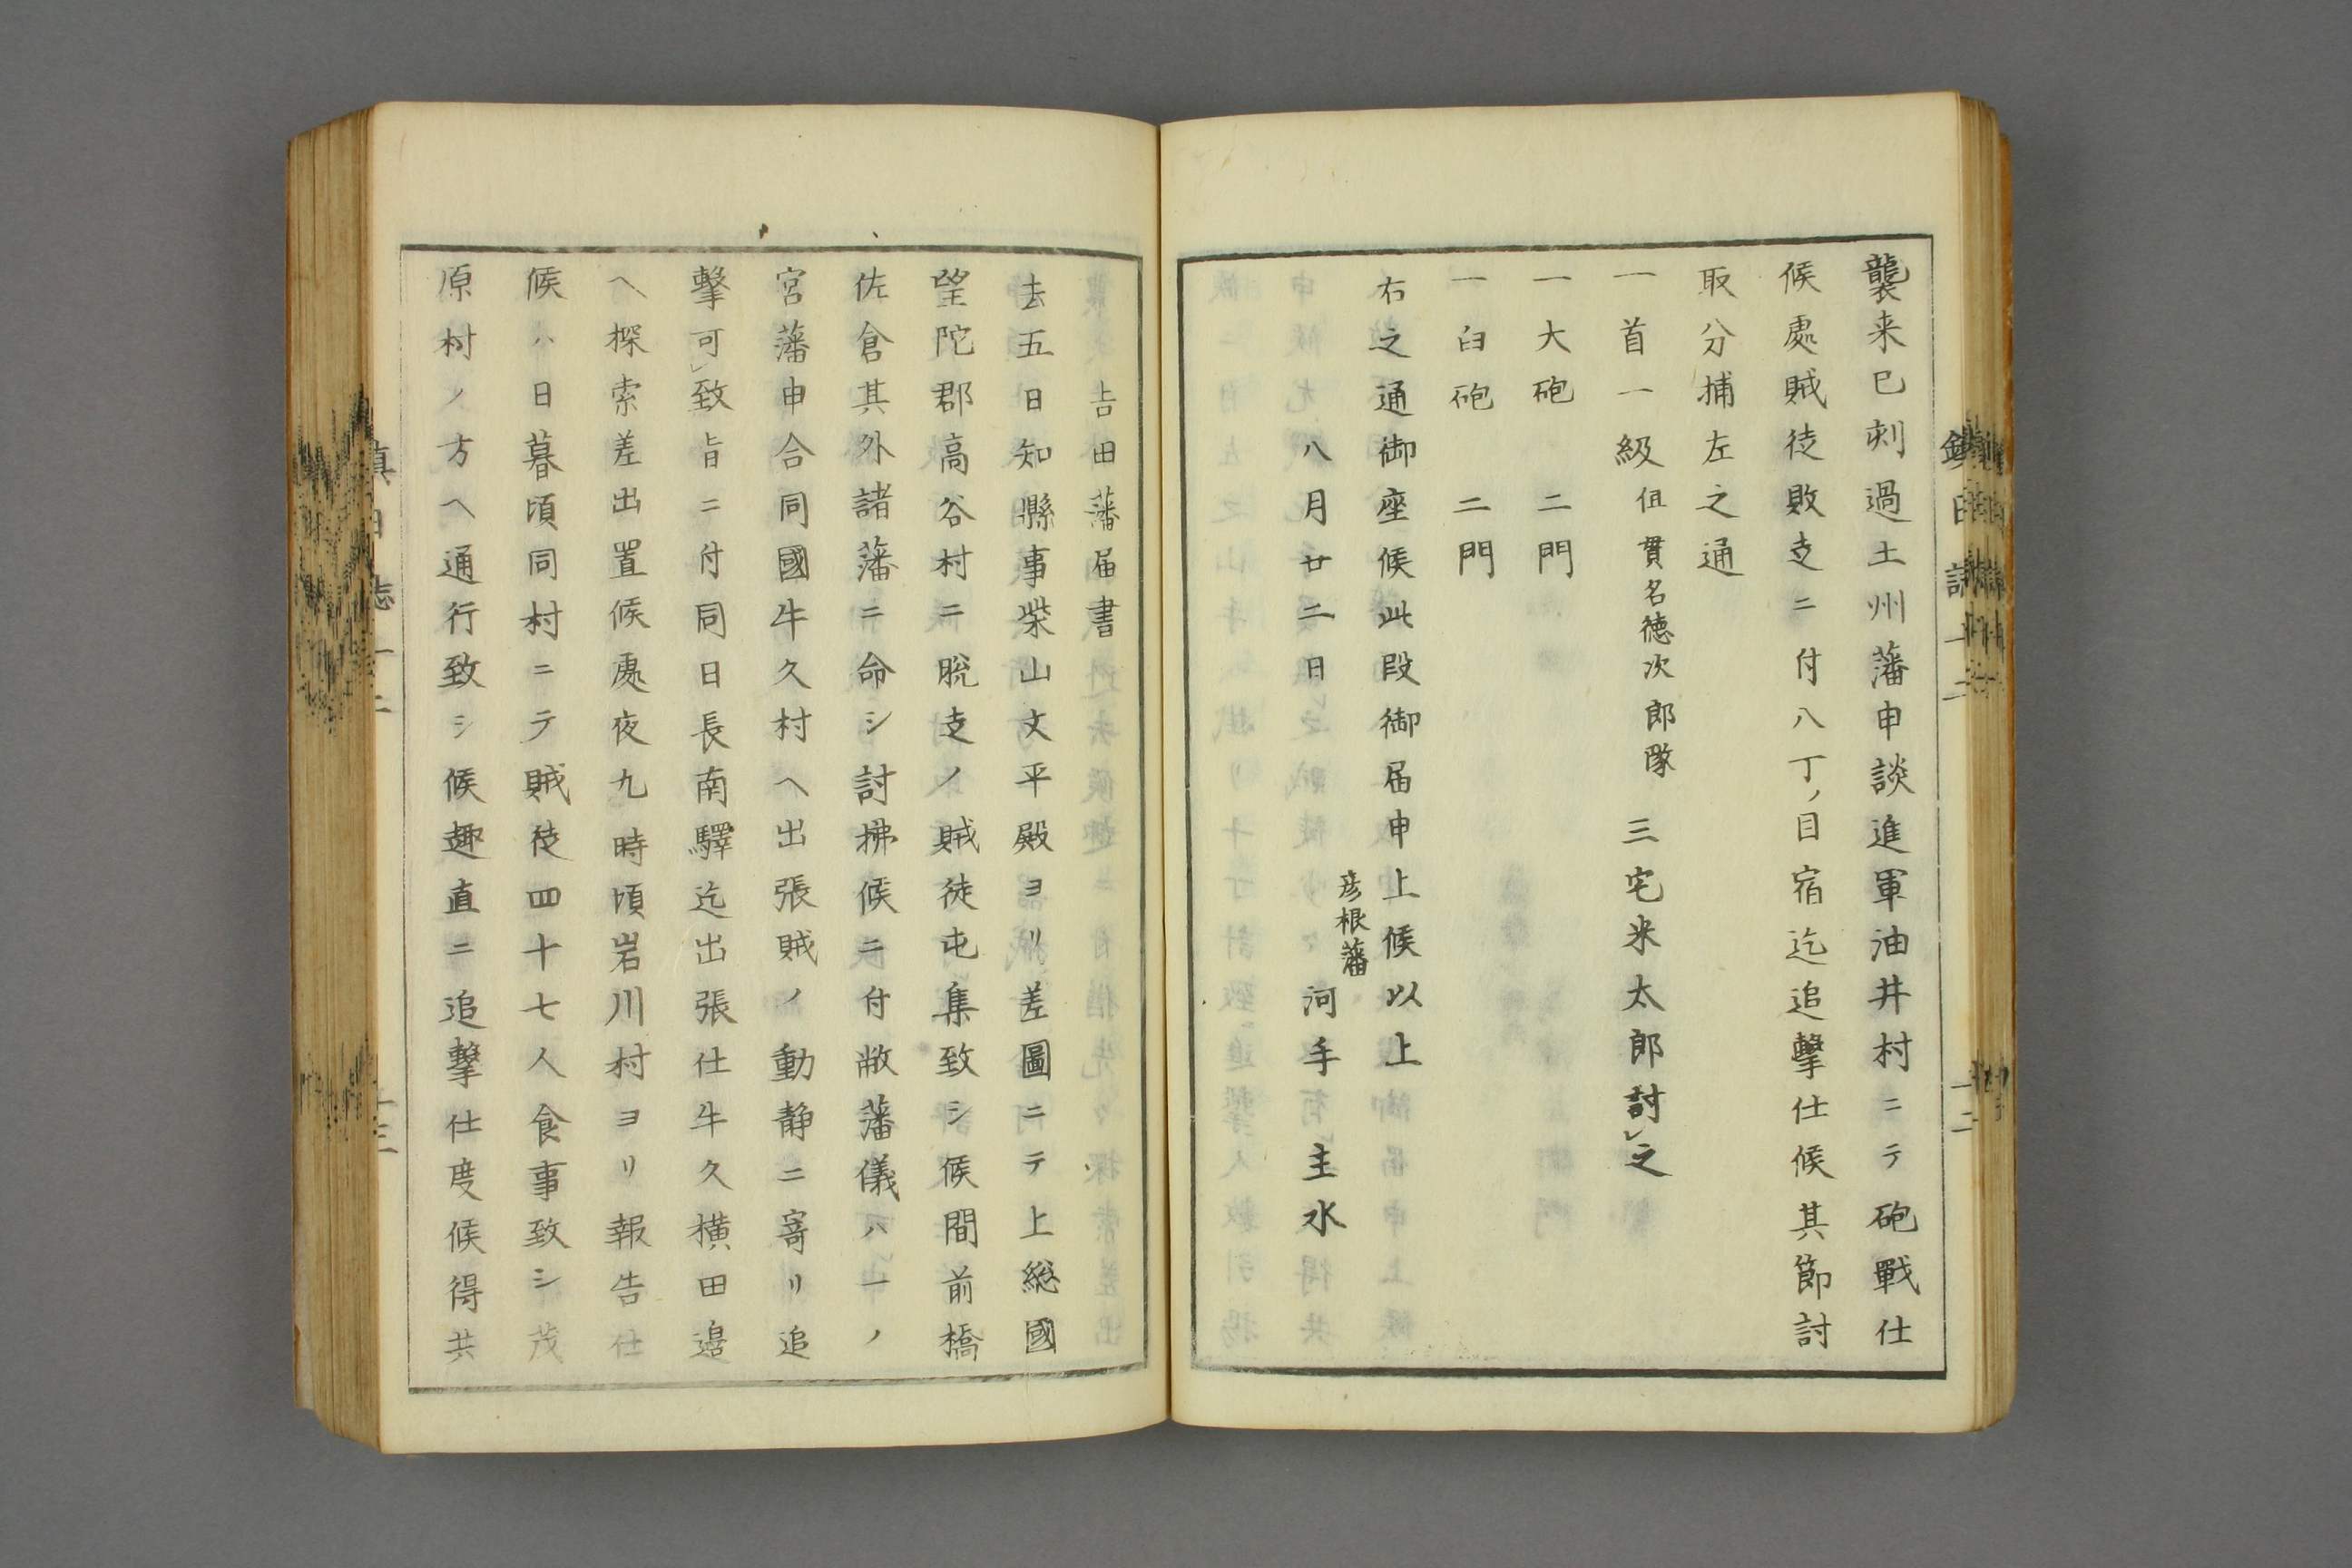 襲来巳刺過土州藩申談進軍油井村ニテ砲戰仕
候處賊徒敗走ニ付八丁ノ目宿迄追擊仕候其節討
取分捕左之通
一首一級 伹貫名徳次郎隊 三宅米太郎討レ之
一大砲 二門
一臼砲 二門
右之通御座候此段御届申上候以上
八月廿二日 彦根藩 河手主水
吉田藩届書
去五日知縣事柴山文平殿ヨリ差圖ニテ上総國
望陀郡高谷村ニ脱走ノ賊徒屯集致シ候間前橋
佐倉其外諸藩ニ命シ討拂候ニ付敝藩儀ハ一ノ
宮藩申合同國牛久村ヘ出張賊ノ動静ニ寄リ追
擊可レ致旨ニ付同日長南驛迄出張仕牛久横田邉
ヘ探索差出置候處夜九時頃岩川村ヨリ報告仕
候ハ日暮頃同村ニテ賊徒四十七人食事致シ茂
原村ノ方ヘ通行致シ候趣直ニ追擊仕度候得共